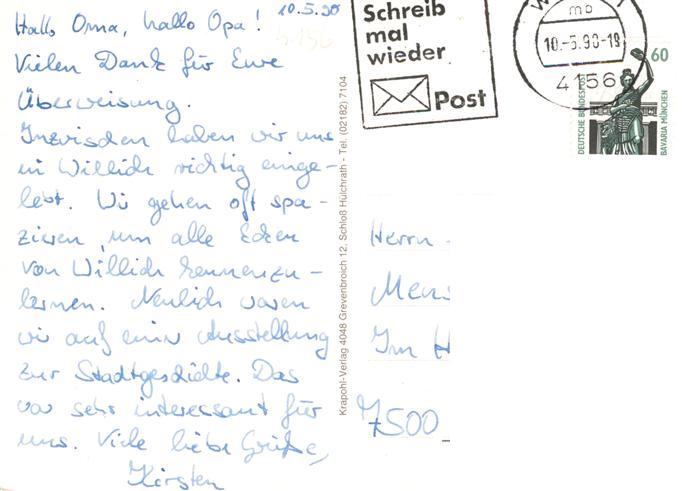 Hallo Oma, hallo Opa! 10.5.90
Vielen Dank für Eure
Überweisung.
Inzwischen haben wir uns
in Willich richtig einge-
lebt. Wir gehen oft spa-
zieren, um alle Ecken
von Willich kennenzu-
lernen. Neulich waren
wir auf einer Ausstellung
zur Stadtgeschichte. Das
war sehr interessant für
uns. Viele liebe Grüße,
Kirsten
Krapohl-Verlag 4048 Grevenbroich 12, Schloß Hülchrath - Tel. (02182) 7104
Schreib
mal
wieder
Post
mb
10.-5.90-18
4156
60
DEUTSCHE BUNDESPOST
BAVARIA MÜNCHEN
Herrn
Im H
7500